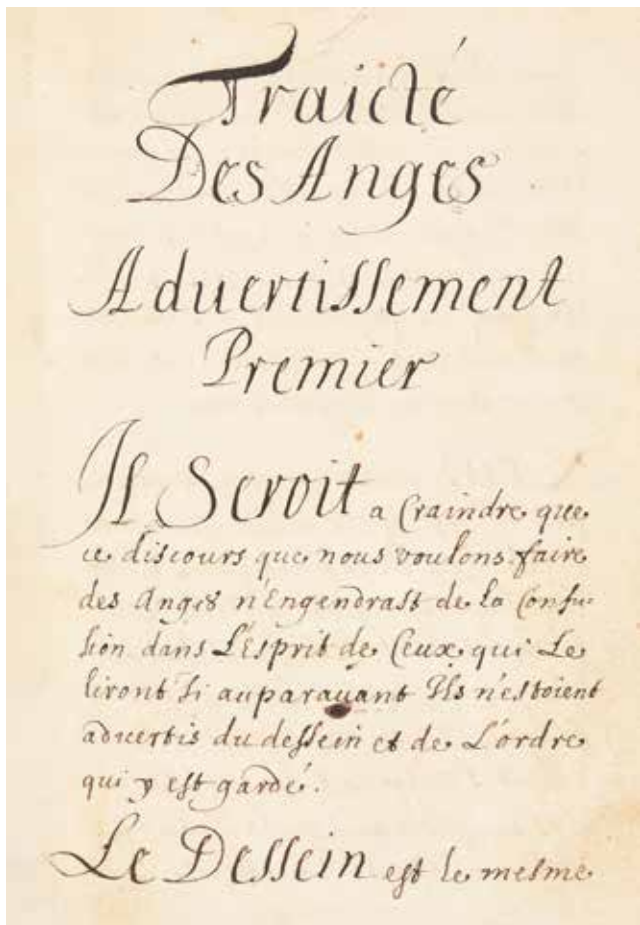 Traicté
Des Anges
Aduertissement
Premier
Il Seroit a Craindre que
ce discours que nous voulons faire
des Anges n'Engendrast de la Confu-
sion dans L'Esprit de Ceux qui Le
liront Si auparauant Ils n'estoient
aduertis du dessein et de L'ordre
qui y est gardé.
Le Dessein est le mesme